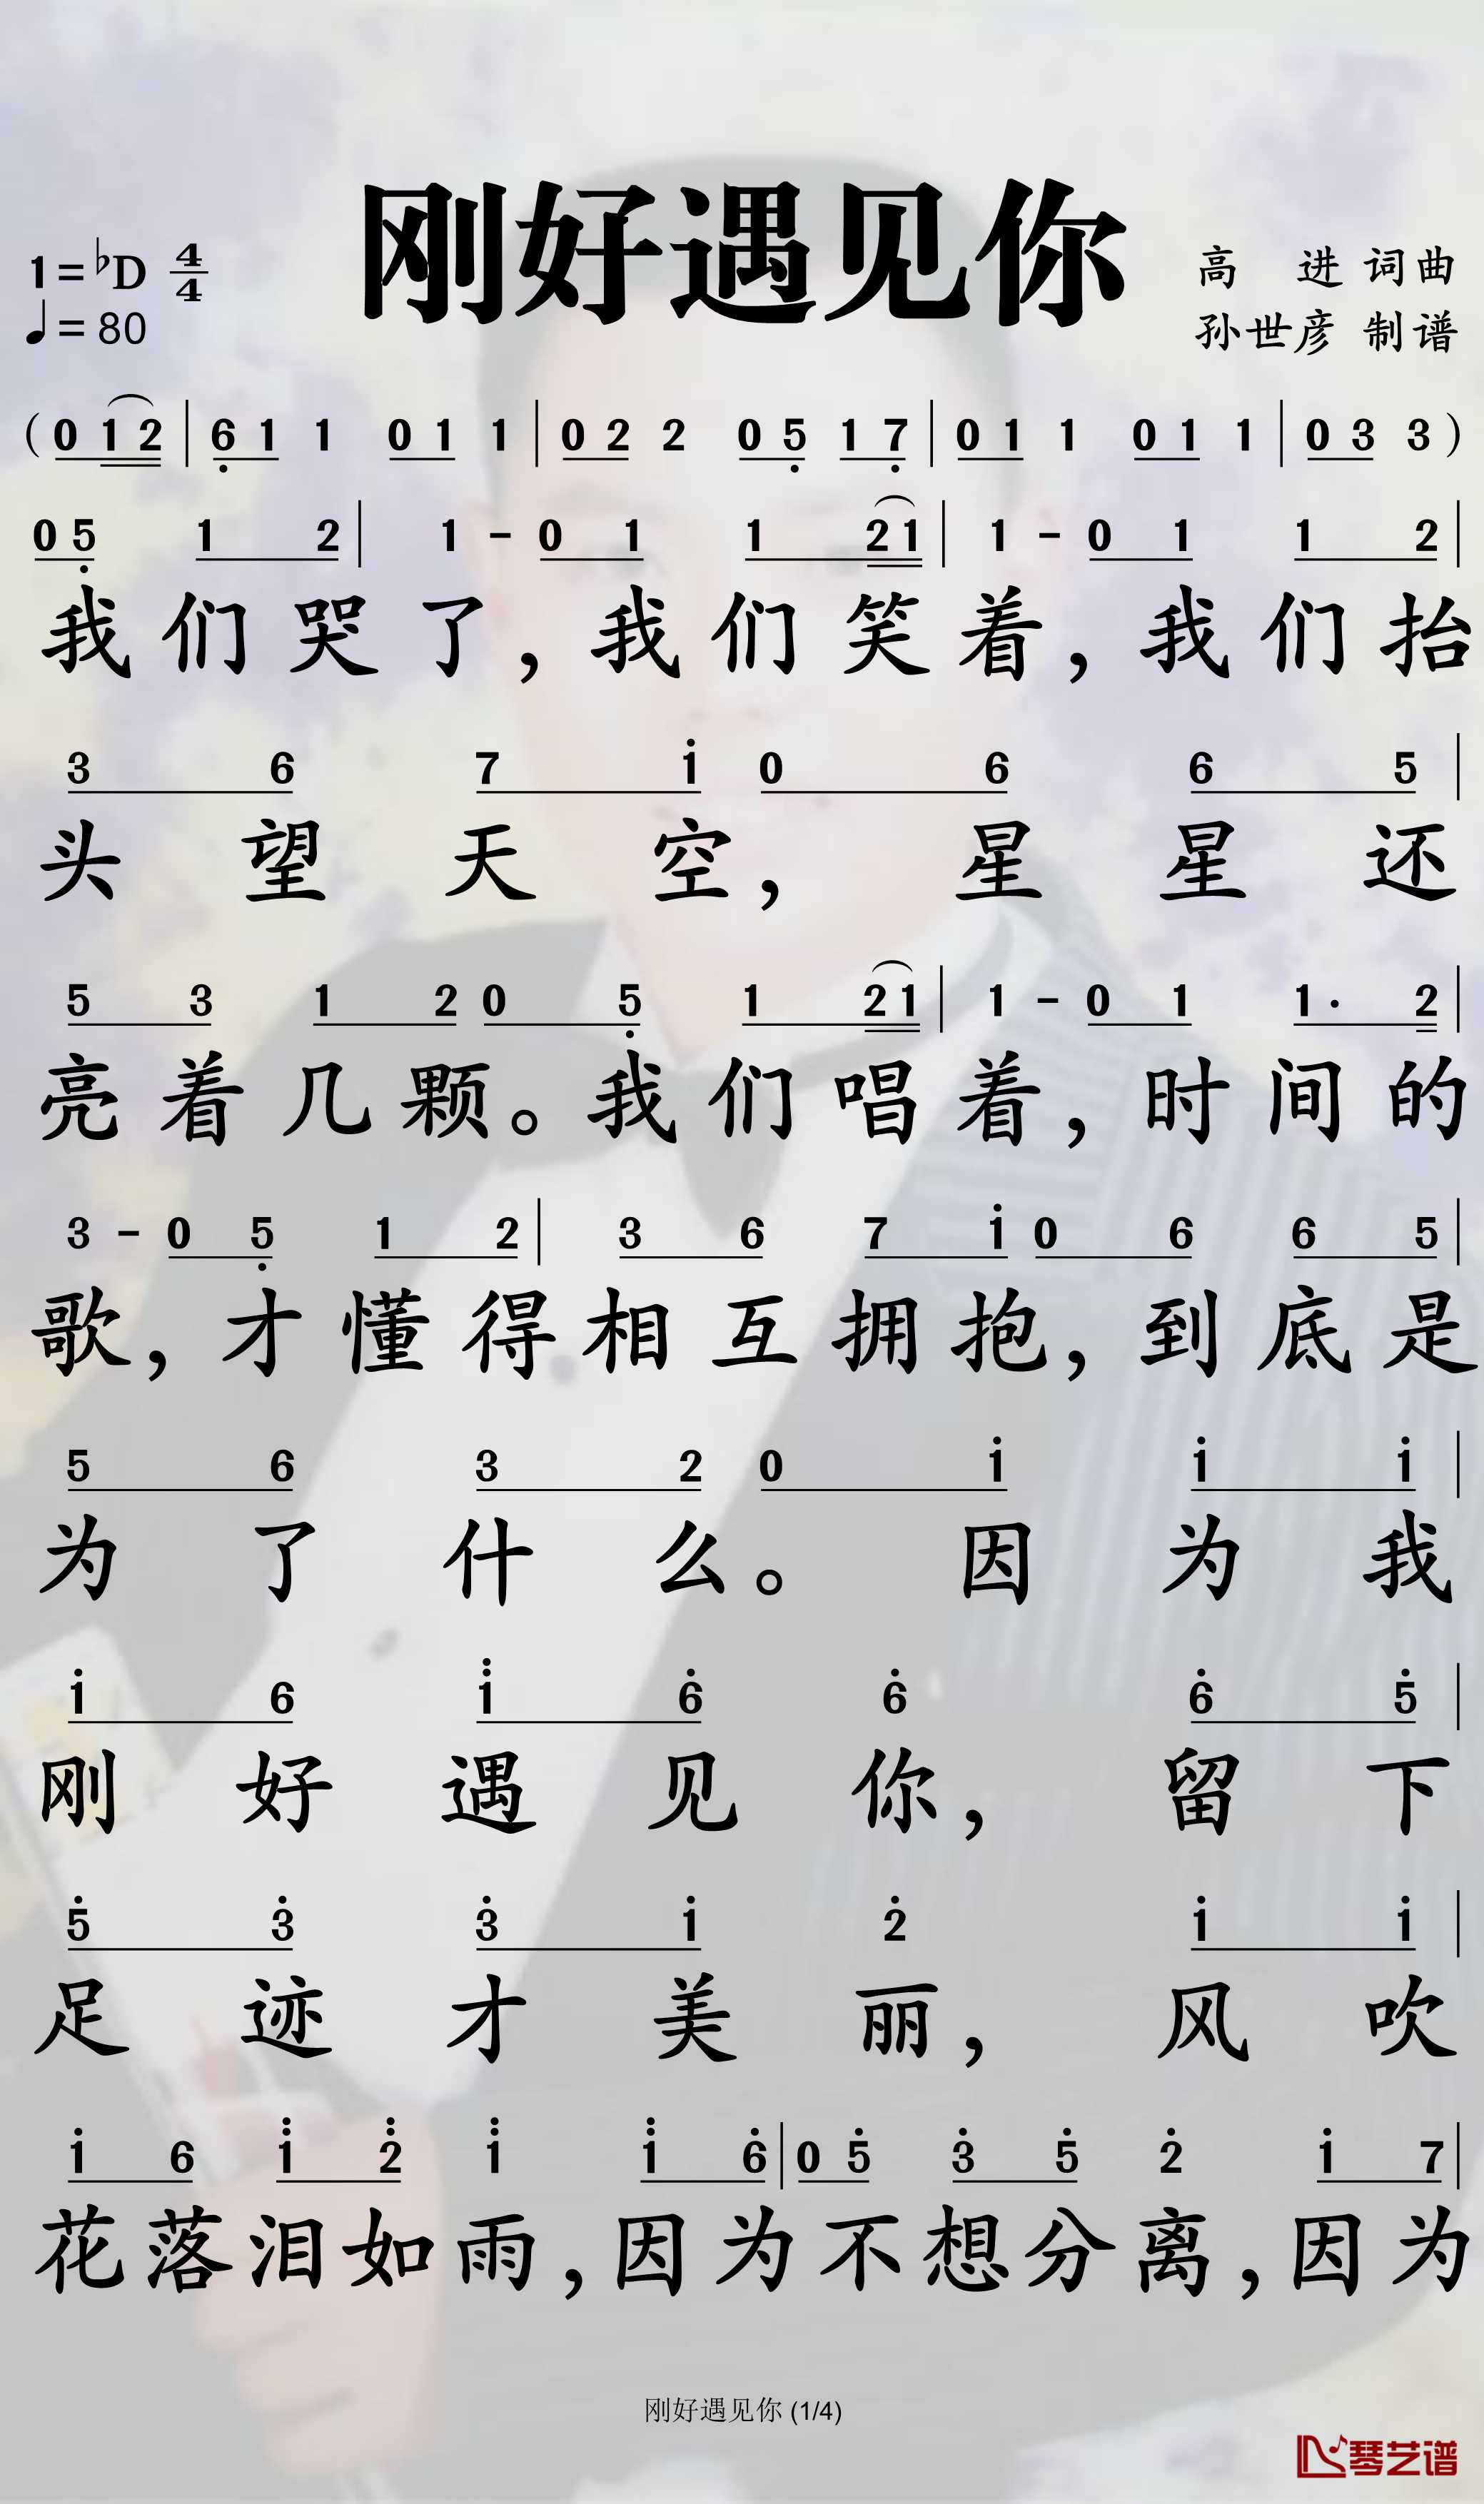 刚好遇见你
1=♭D 4/4
♩=80
高 进 词曲
孙世彦 制谱
(0 1 2 | 6̣ 1 1 0 1 1 | 0 2 2 0 5̣ 1 7̣ | 0 1 1 0 1 1 | 0 3 3)
0 5̣ 1 2 | 1 - 0 1 1 2 1 | 1 - 0 1 1 2 |
我们哭了,我们笑着,我们抬
3 6 7 1̇ 0 6 6 5 |
头望天空,星星还
5 3 1 2 0 5̣ 1 2 1 | 1 - 0 1 1· 2 |
亮着几颗。我们唱着,时间的
3 - 0 5̣ 1 2 | 3 6 7 1̇ 0 6 6 5 |
歌,才懂得相互拥抱,到底是
5 6 3 2 0 1̇ 1̇ 1̇ |
为了什么。因为我
1̇ 6 1̈ 6̇ 6̇ 6̇ 5̇ |
刚好遇见你,留下
5̇ 3̇ 3̇ 1̇ 2̇ 1̇ 1̇ |
足迹才美丽,风吹
1̇ 6 1̈ 2̈ 1̈ 1̈ 6̇ | 0 5̇ 3̇ 5̇ 2̇ 1̇ 7 |
花落泪如雨,因为不想分离,因为
刚好遇见你 (1/4)
琴艺谱